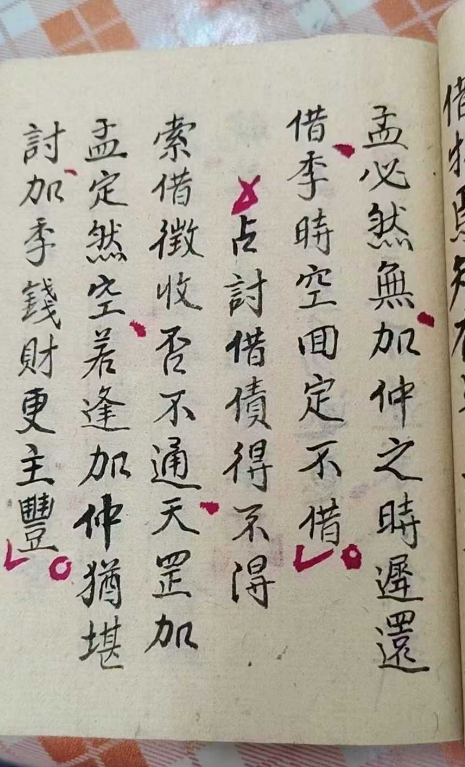 借物
孟必然無加仲之時遲還
借季時空回定不借
占討借債得不得
索借徵收否不通天罡加
孟定然空若逢加仲猶堪
討加季錢財更主豐